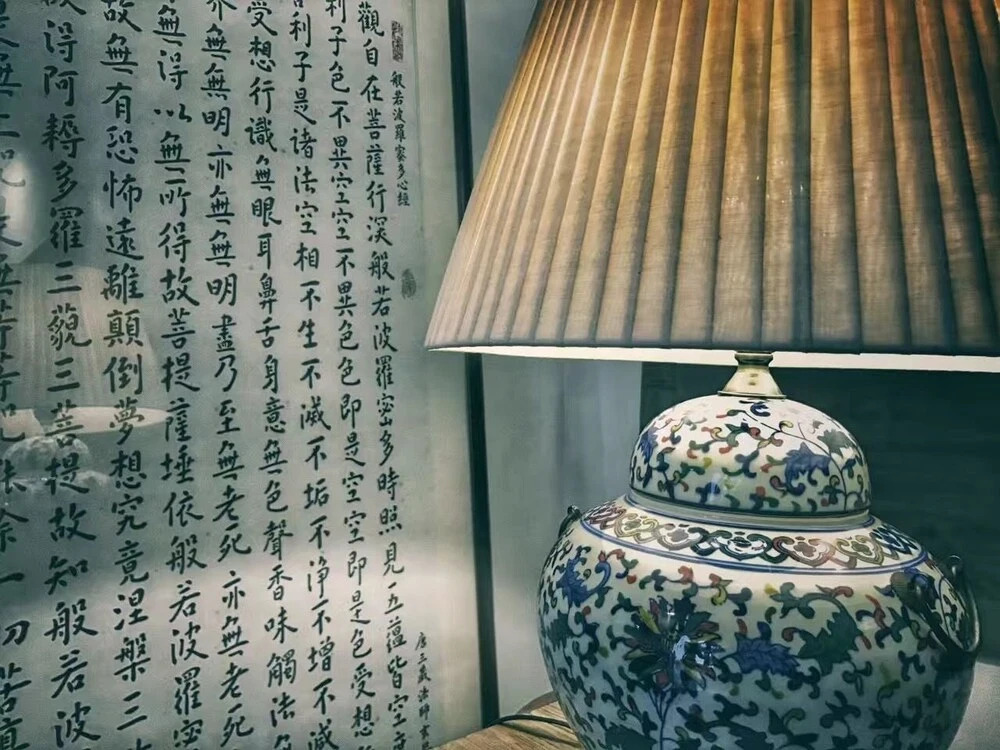 般若波羅蜜多心經
觀自在菩薩行深般若波羅密多時照見五蘊皆空度
利子色不異空空不異色色即是空空即是色受想
利子是諸法空相不生不滅不垢不淨不增不減
受想行識無眼耳鼻舌身意無色聲香味觸法
界無無明亦無無明盡乃至無老死亦無老死
無得以無所得故菩提薩埵依般若波羅密
故無有恐怖遠離顛倒夢想究竟涅槃三
故得阿耨多羅三藐三菩提故知般若波
無上咒是無等等咒能除一切苦真
唐三藏法師玄